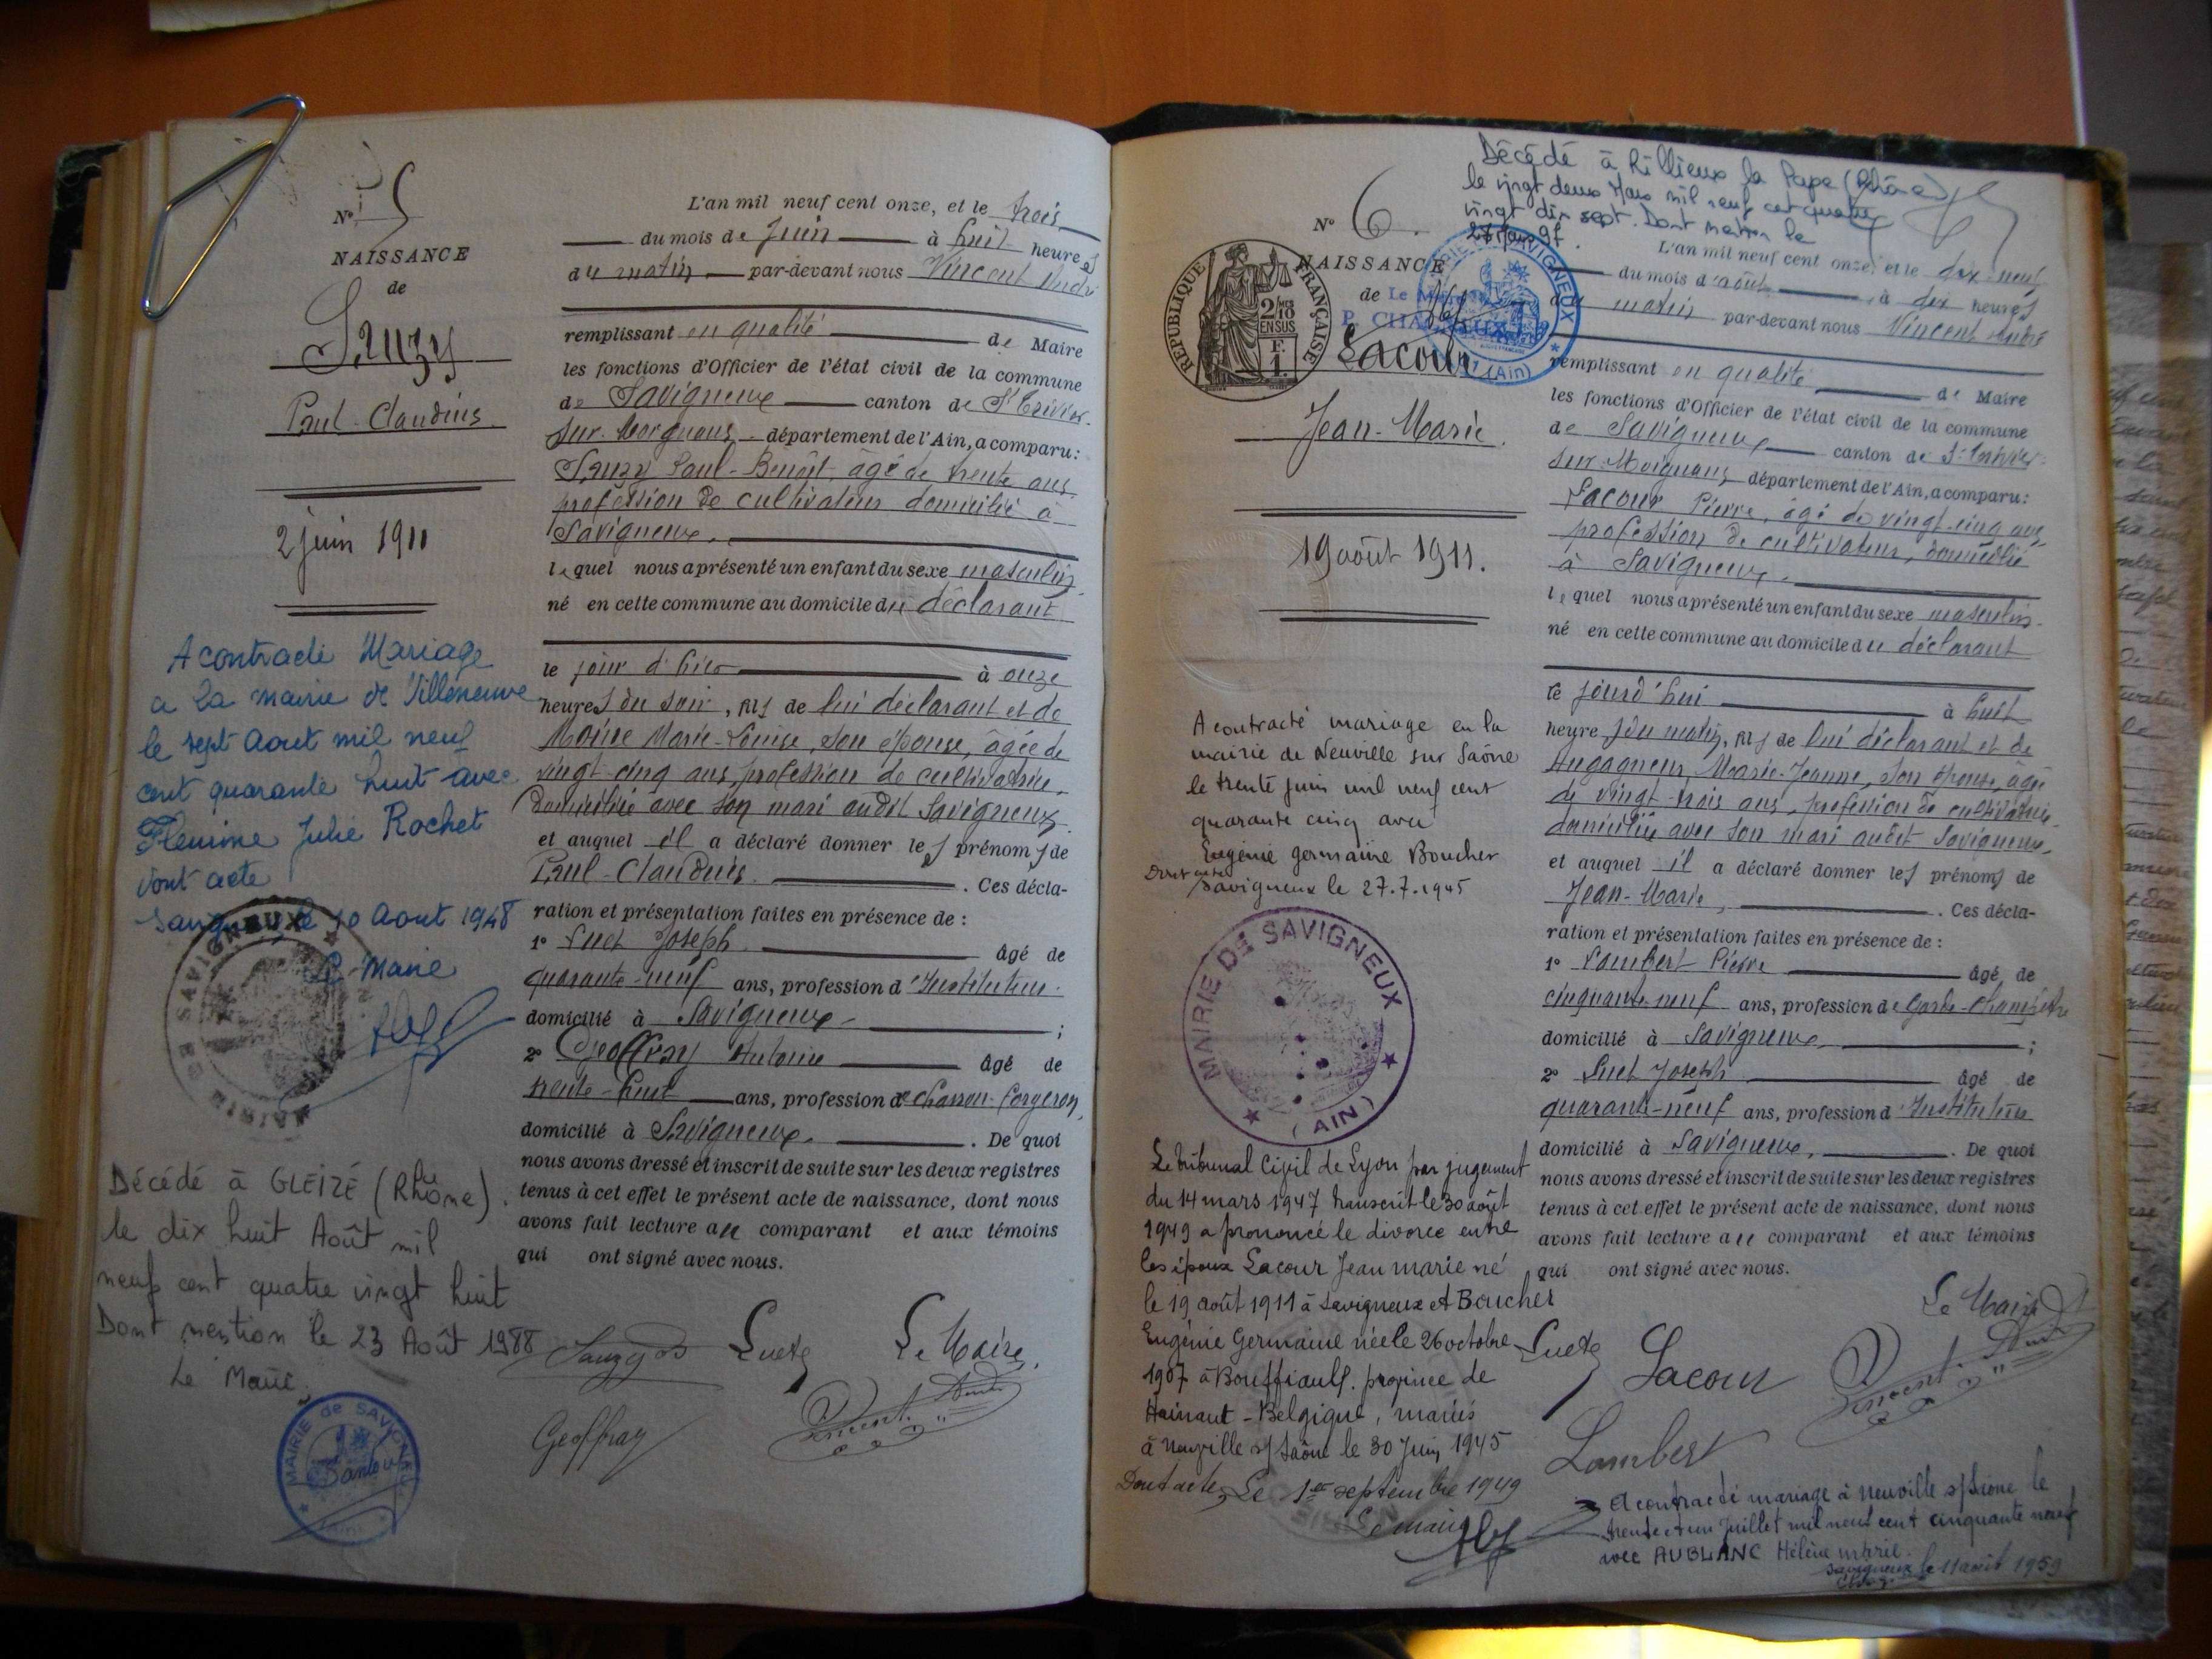 N° 5
NAISSANCE
de
Sauzy
Paul-Claudius
2 juin 1911
A contracté Mariage
a la mairie de Villeneuve
le sept Aout mil neuf
cent quarante huit avec
Fleurine Julie Rochet
dont acte
Savigneux le 10 Aout 1948
Le Maire
MAIRIE DE SAVIGNEUX
Décédé à GLEIZÉ (Rhône)
le dix huit Août mil
neuf cent quatre vingt huit
Dont mention le 23 Août 1988
Le Maire
MAIRIE de SAVIGNEUX
L'an mil neuf cent onze, et le trois
du mois de Juin à huit heures
du matin par-devant nous Vincent André
remplissant en qualité de Maire
les fonctions d'Officier de l'état civil de la commune
de Savigneux canton de St Trivier
sur-Moignans département de l'Ain, a comparu:
Sauzy Paul-Benoît, âgé de trente ans,
profession de cultivateur domicilié à
Savigneux.
lequel nous a présenté un enfant du sexe masculin
né en cette commune au domicile du déclarant
le jour d'hier à onze
heures du soir, fils de lui déclarant et de
Moine Marie-Louise, son épouse, âgée de
vingt-cinq ans, profession de cultivatrice,
domiciliée avec son mari audit Savigneux,
et auquel il a déclaré donner les prénoms de
Paul-Claudius. Ces décla-
ration et présentation faites en présence de :
1° Suet Joseph âgé de
quarante-neuf ans, profession d'Instituteur
domicilié à Savigneux ;
2° Geoffray Antoine âgé de
trente-huit ans, profession de Charron-forgeron,
domicilié à Savigneux. De quoi
nous avons dressé et inscrit de suite sur les deux registres
tenus à cet effet le présent acte de naissance, dont nous
avons fait lecture au comparant et aux témoins
qui ont signé avec nous.
Sauzy Suet Le Maire,
Geoffray Vincent André
Décédé à Rillieux la Pape (Rhône)
le vingt deux Mars mil neuf cent quatre
vingt dix sept. Dont mention le
27 Mars 97.
N° 6.
NAISSANCE
de
Le Maire
P. CHAGNEUX
MAIRIE SAVIGNEUX (Ain)
RÉPUBLIQUE FRANÇAISE
2/10 EN SUS
F. 1.
Lacour
Jean-Marie.
19 août 1911.
A contracté mariage en la
mairie de Neuville sur Saône
le trente juin mil neuf cent
quarante cinq avec
Eugénie Germaine Boucher
Dont acte
Savigneux le 27.7.1945
MAIRIE DE SAVIGNEUX (AIN)
Le tribunal Civil de Lyon par jugement
du 14 mars 1947 transcrit le 30 août
1949 a prononcé le divorce entre
les époux Lacour Jean marie né
le 19 août 1911 à Savigneux et Boucher
Eugénie Germaine née le 26 octobre
1907 à Bouffioulf. province de
Hainaut - Belgique, mariés
à Neuville s/ Saône le 30 Juin 1945
Dont acte, Le 1er septembre 1949
Le maire
L'an mil neuf cent onze, et le dix-neuf
du mois d'août à dix heures
du matin par-devant nous Vincent André
remplissant en qualité de Maire
les fonctions d'Officier de l'état civil de la commune
de Savigneux canton de St Trivier
sur-Moignans département de l'Ain, a comparu:
Lacour Pierre, âgé de vingt-cinq ans,
profession de cultivateur, domicilié
à Savigneux.
lequel nous a présenté un enfant du sexe masculin
né en cette commune au domicile du déclarant
le jourd'hui à huit
heures du matin, fils de lui déclarant et de
Augagneur, Marie-Jeanne, son épouse, âgée
de vingt-trois ans, profession de cultivatrice,
domiciliée avec son mari audit Savigneux,
et auquel il a déclaré donner les prénoms de
Jean-Marie, . Ces décla-
ration et présentation faites en présence de :
1° Lambert Pierre âgé de
cinquante-neuf ans, profession de Garde-Champêtre
domicilié à Savigneux, ;
2° Suet Joseph âgé de
quarante-neuf ans, profession d'Instituteur
domicilié à Savigneux, . De quoi
nous avons dressé et inscrit de suite sur les deux registres
tenus à cet effet le présent acte de naissance, dont nous
avons fait lecture au comparant et aux témoins
qui ont signé avec nous.
Le Maire
Suet Lacour Vincent André
Lambert
A contracté mariage à Neuville s/Saône le
trente et un Juillet mil neuf cent cinquante neuf
avec AUBLANC Hélène Marie.
Savigneux le 11 août 1959